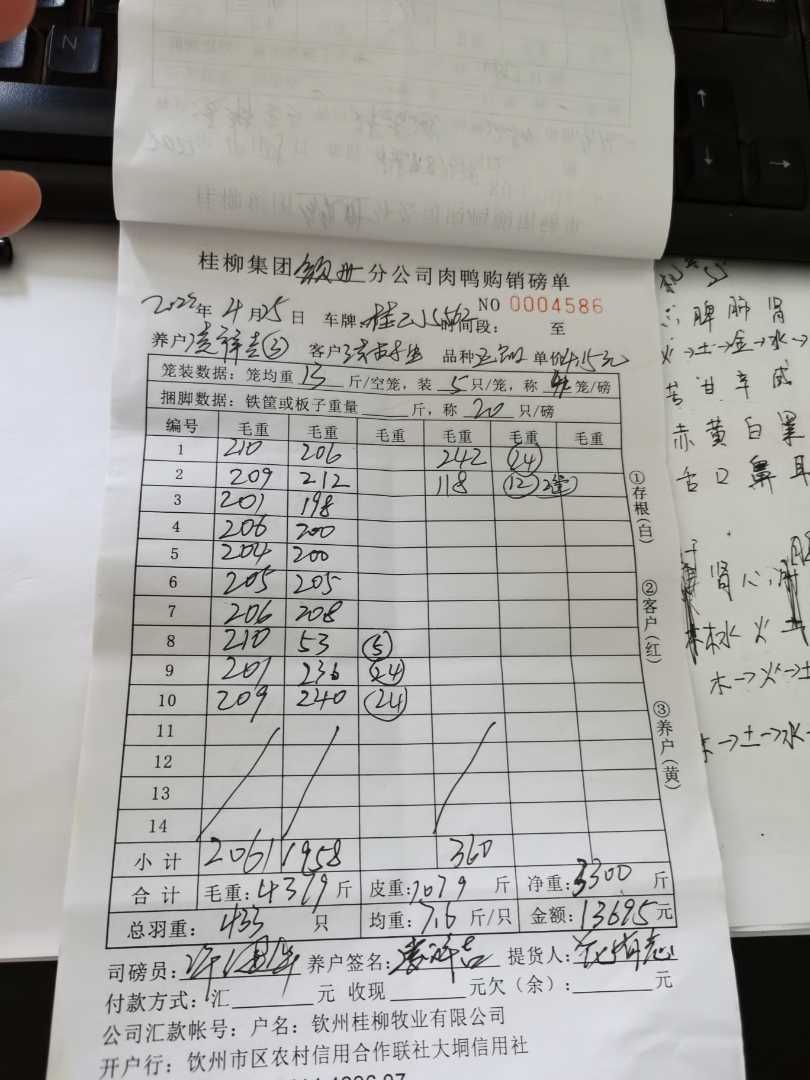 桂柳集团钦州分公司肉鸭购销磅单
NO 0004586
4月25日 车牌: 时间段: 至
养户: 客户: 品种 单价4.15元
笼装数据: 笼均重 13 斤/空笼, 装 5 只/笼, 称 4 笼/磅
捆脚数据: 铁筐或板子重量 斤, 称 20 只/磅
编号 毛重 毛重 毛重 毛重 毛重 毛重
1 210 206 242 (24)
2 209 212 118 (12)
3 201 198
4 206 200
5 204 200
6 205 205
7 206 208
8 210 53 (5)
9 201 236 (24)
10 209 240 (24)
11
12
13
14
小计 2061 1958 360
合计 毛重: 4379 斤 皮重: 1079 斤 净重: 3300 斤
总羽重: 433 只 均重: 7.6 斤/只 金额: 13695 元
司磅员: 养户签名: 提货人:
付款方式: 汇 元 收现 元欠(余): 元
公司汇款帐号: 户名: 钦州桂柳牧业有限公司
开户行: 钦州市区农村信用合作联社大垌信用社
①存根(白)
②客户(红)
③养户(黄)
脾 肺 肾
火→土→金→水→
苦 甘 辛 咸
赤 黄 白 黑
舌 口 鼻 耳
肾 心
水 火 土
木→火→土
木→土→水